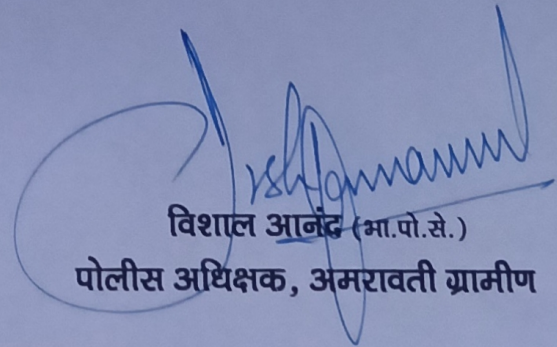 विशाल आनंद (भा.पो.से.)
पोलीस अधिक्षक, अमरावती ग्रामीण